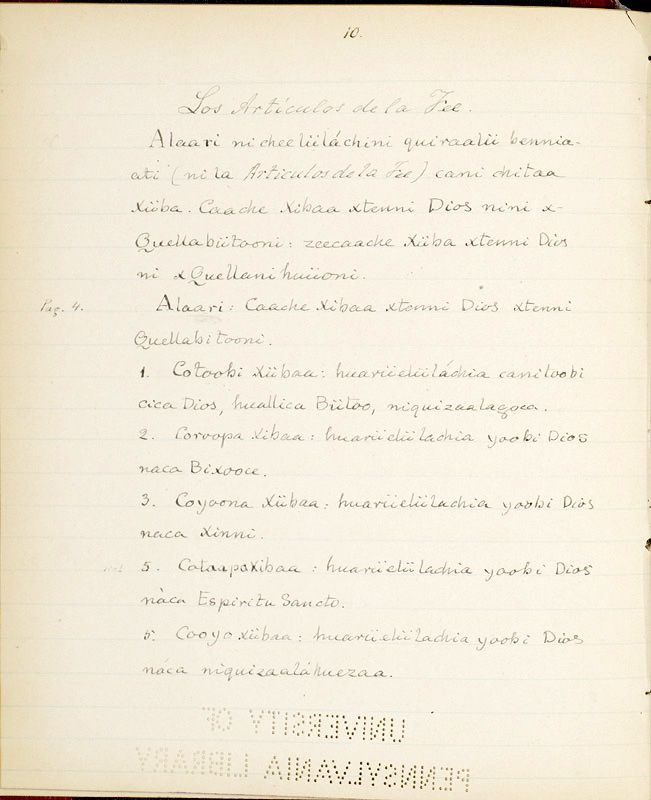 10.
Los Artículos de la Fee.
Alaari ni cheeliiláchini quiraalii bennia-
ati (ni la Articulos de la Fee) cani chitaa
Xiiba. Caache Xibaa xtenni Dios nini x-
Quellabiitooni: zeecaache Xiiba xtenni Dios
ni xQuellani huiioni.
Pag. 4.
Alaari: Caache Xibaa xtenni Dios xtenni
Quellabitooni.
1. Cotoobi Xiibaa: huariieliiláchia canitoobi
cica Dios, huallica Biitoo, niquizaalagoca.
2. Coroopa Xibaa: huariieliilachia yoobi Dios
naca Bixooce.
3. Coyoona Xiibaa: huariieliilachia yoobi Dios
naca Xinni.
5. CotaapaXibaa: huariieliilachia yoobi Dios
nàca Espiritu Sancto.
5. Cooyo Xiibaa: huariieliilachia yoobi Dios
náca niquizaaláhuezaa.
UNIVERSITY OF
PENNSYLVANIA LIBRARY